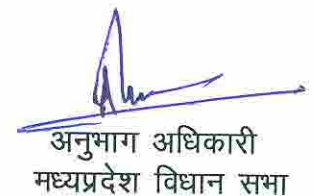 अनुभाग अधिकारी
मध्यप्रदेश विधान सभा